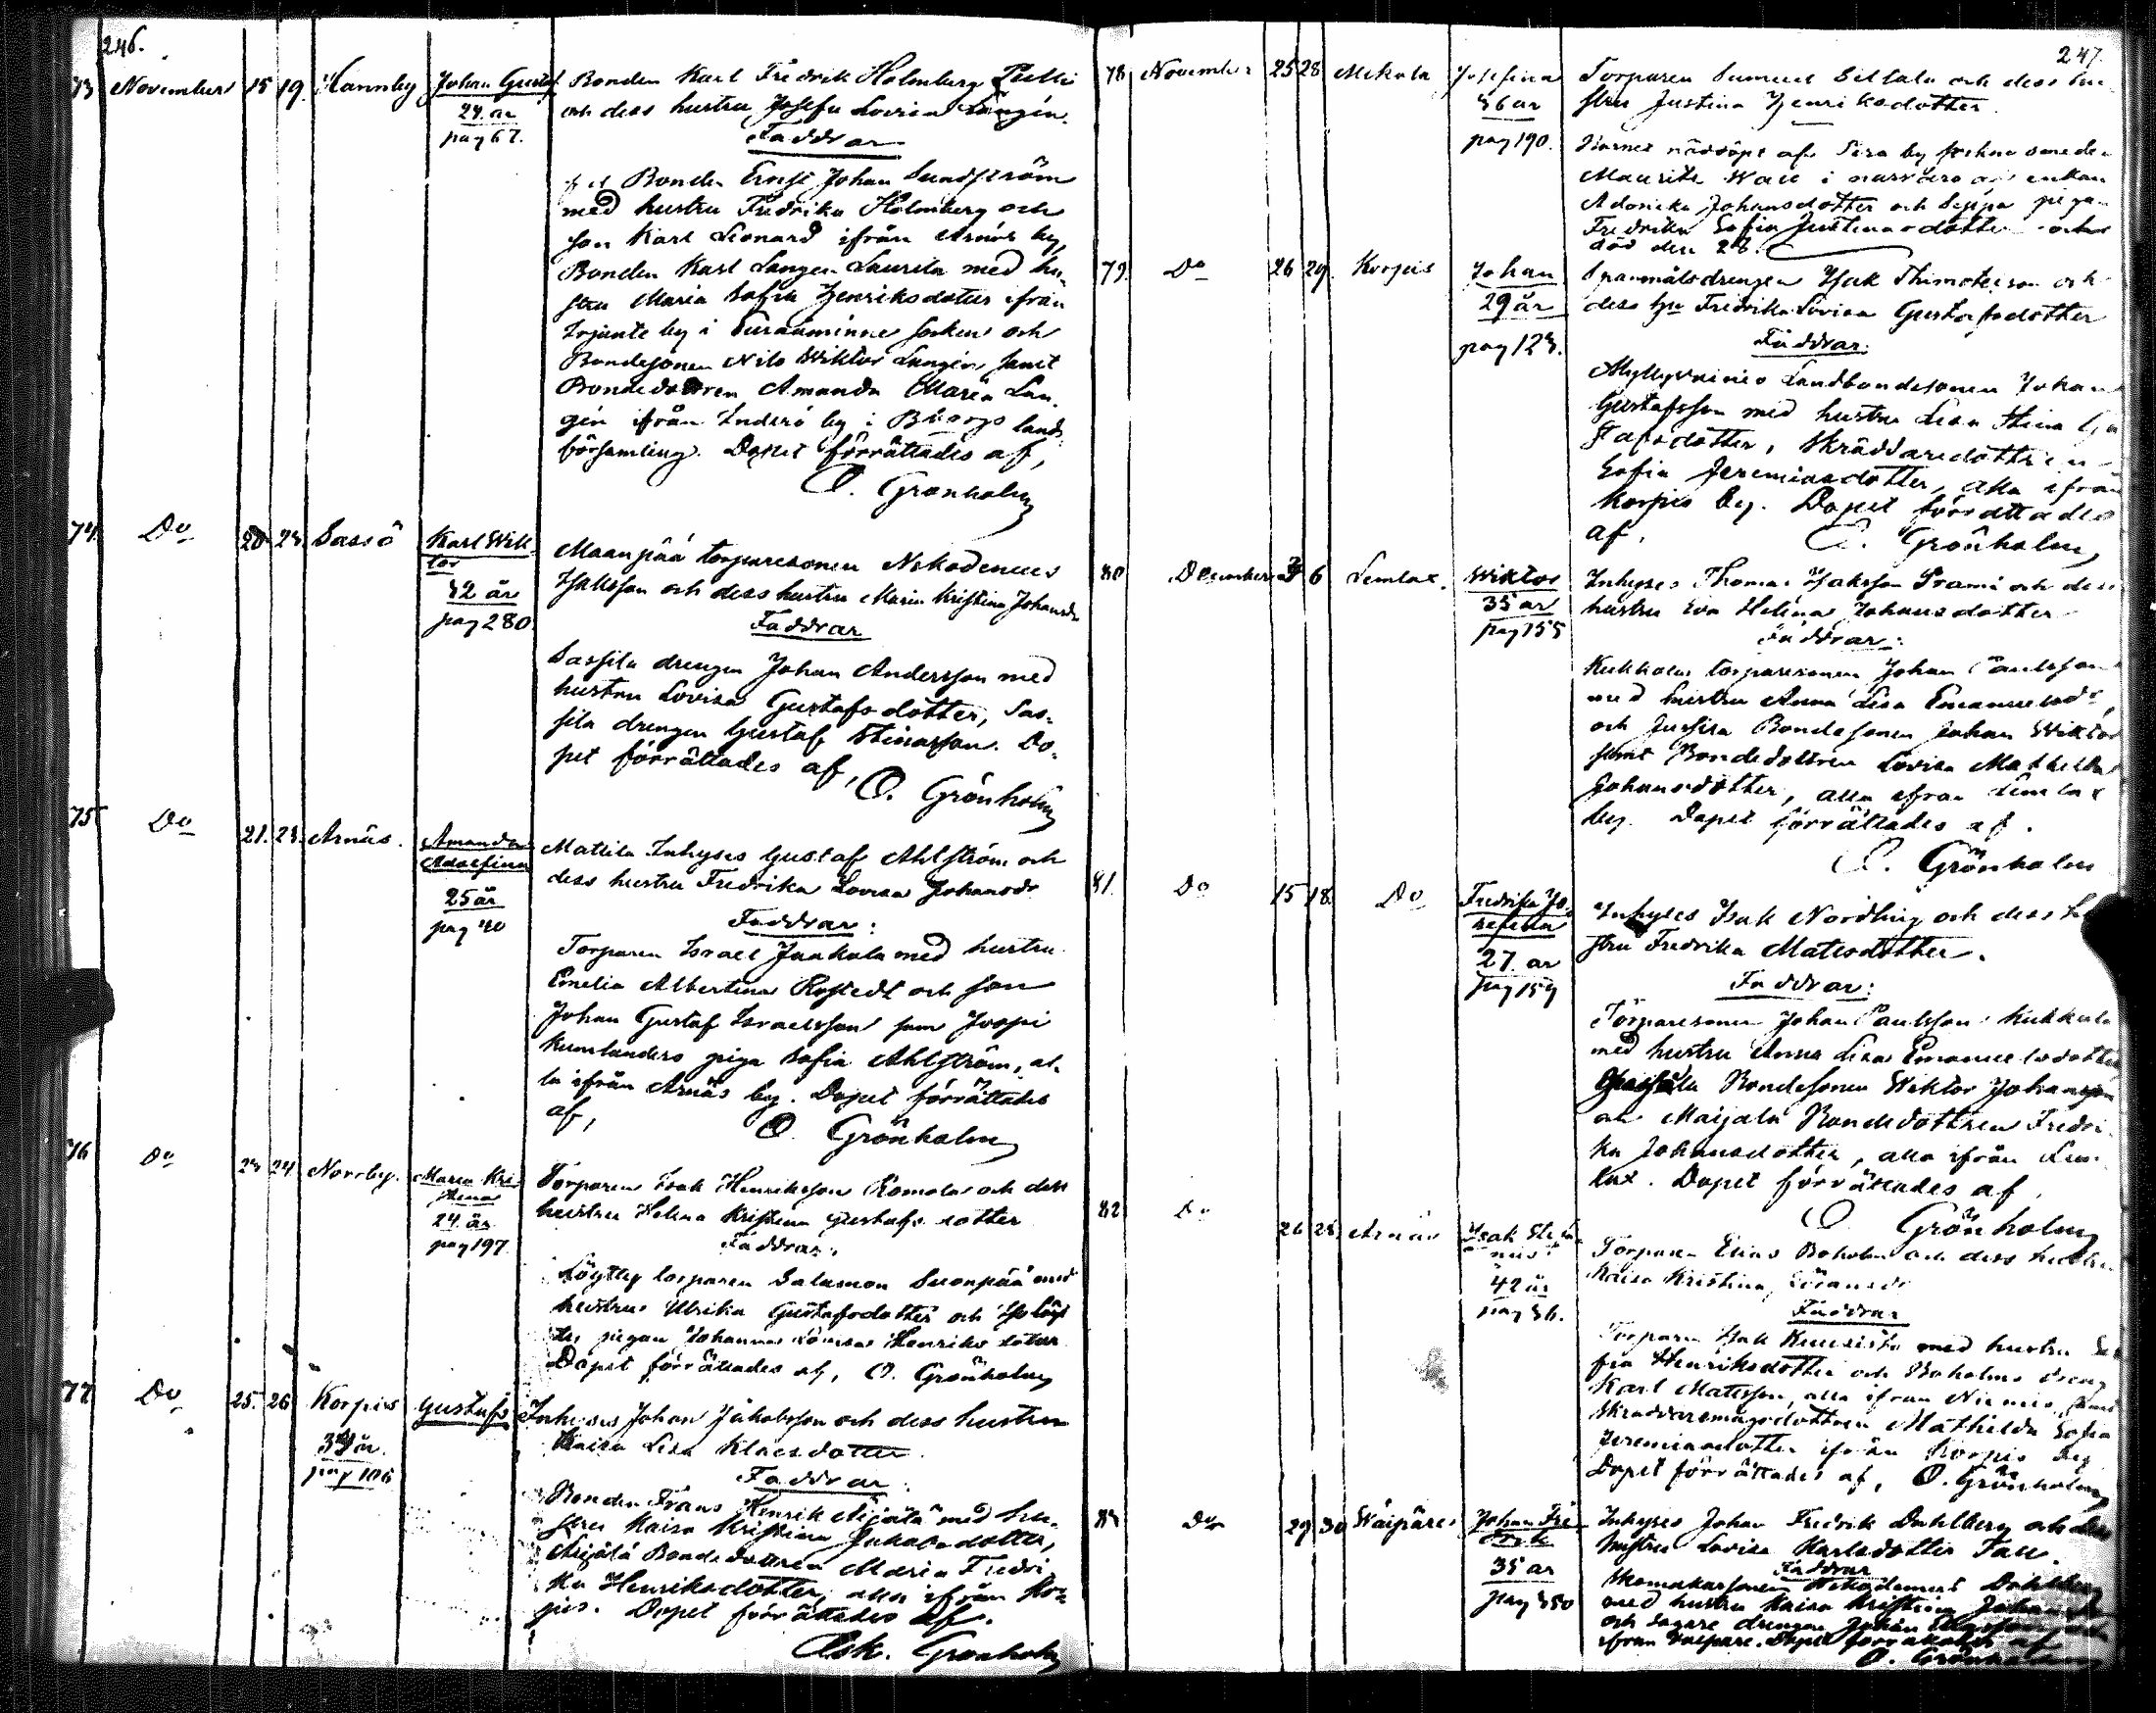 246.
73 November 15 19. Hannby Johan Gustaf Bonden Karl Fredrik Holmberg
24. år och dess hustru Josefa Lovisa Langén.
pag 67. Faddrar
Bonden Ernst Johan Sundström
med hustru Fredrika Holmberg och
son Karl Leonard ifrån Arnäs by,
Bonden Karl Langen Laurila med hu
stru Maria Sofia Henriksdotter ifrån
by i socken och
Bondesonen Nils Wiktor Langén samt
Bondedottren Amanda Maria Lan-
gén ifrån by i Borgo lands
församling. Dopet förrättades af,
O. Grönholm
74. Do 20. 23. Sassö Karl Wik-
tor Maanpää torparesonen Nikodemus
32 år Isaksson och dess hustru Maria Kristina Johansdr
pag 280. Faddrar
Sassila drengen Johan Andersson med
hustru Lovisa Gustafsdotter, Sas-
sila drengen Gustaf Stinasson. Do-
pet förrättades af,
O. Grönholm
75 Do 21. 23. Arnäs. Amanda
Adolfina Mattila Inhyses Gustaf Ahlström och
25 år dess hustru Fredrika Lovisa Johansdr
pag 40 Faddrar:
Torparen Israel Jaakola med hustru
Emelia Albertina Rostedt och son
Johan Gustaf Israelsson samt
piga Sofia Ahlström, al-
la ifrån Arnäs by. Dopet förrättades
af,
O. Grönholm
76 Do 23 24. Norrby. Maria Kri-
stina Torparen Isak Henriksson Romola och dess
24. år hustru Helena Kristina Gustafsdotter
pag 197. Faddrar:
torparen Salomon Suonpää med
hustru Ulrika Gustafsdotter och
pigan Johanna Lovisa Henriksdotter
Dopet förrättades af, O. Grönholm
77 Do 25. 26 Korpis Gustafs Inhyses Johan Jakobsson och dess hustru
år. Kaisa Lisa Klaesdotter.
pag 106 Faddrar:
Bonden Frans Henrik Äijälä med hu-
stru Kaisa Kristina Jakobsdotter,
Äijälä Bondedottren Maria Fredri
ka Henriksdotter, alla ifrån Kor-
pis. Dopet förrättades af.
Osk. Grönholm
247.
78 November 25 28 Mikola Josefina Torparen Samuel Sillala och dess hu
36 år stru Justina Henriksdotter.
pag 190. Barnet nöddöpt af
Maurits Wall i närvaro af enkan
Johansdotter och Seppä pigan
Fredrika Sofia Justinasdotter och
död den 28.
79. Do 26 29. Korpis Johan Spanmålsdrengen Isak Thimoteison och
29 år dess hu Fredrika Lovisa Gustafsdotter
pag 123. Faddrar:
Landbondesonen Johan
Gustafsson med hustru Lisa Stina Gu
stafsdotter, Skräddaredottren
Sofia Jeremiasdotter, alla ifrån
Korpis by. Dopet förrättades
af,
O. Grönholm
80 December 6 Lemlax. Wiktor Inhyses Thomas Isaksson Prami och dess
35 år hustru Eva Helena Johansdotter
pag 155 Faddrar:
Kukkola torparesonen Johan Paulsson
med hustru Anna Lisa Emanuelsdr,
och Jussila Bondesonen Johan Wiktor
samt Bondedottren Lovisa Mathilda
Johansdotter, alla ifrån Lemlax
by. Dopet förrättades af.
O. Grönholm
81. Do 15 18. Do Fredrika Jo-
sefina Inhyses Isak Nordling och dess hu
27. år stru Fredrika Matsdotter.
pag 159 Faddrar:
Torparesonen Johan Paulsson Kukkola
med hustru Anna Lisa Emanuelsdotter
Bondesonen Wiktor Johansson
och Maijala Bondedottren Fredri
ka Johansdotter, alla ifrån Lem-
lax. Dopet förrättades af.
O. Grönholm
82 Do 26 28. Arnäs Isak
Torparen Elias Boholm och dess hustru
42 år Kaisa Kristina Göransdr
pag 36. Faddrar
Torparen Isak med hustru So
fia Henriksdotter och Boholms dreng
Karl Matsson, alla ifrån Niemis, samt
Skräddaremågsdottren Mathilda Sofia
Jeremiasdotter ifrån Korpis by
Dopet förrättades af, O. Grönholm
83 Do 29 30 Waipäre Johan Fre-
drik Inhyses Johan Fredrik Dahlberg och dess
35 år hustru Lovisa Karlsdotter Tall.
pag 350 Faddrar
Skomakarsonen Nikodemus Dahlberg
med hustru Kaisa Kristina
och drengen Johan
ifrån Waipäre. Dopet förrättades af
O. Grönholm